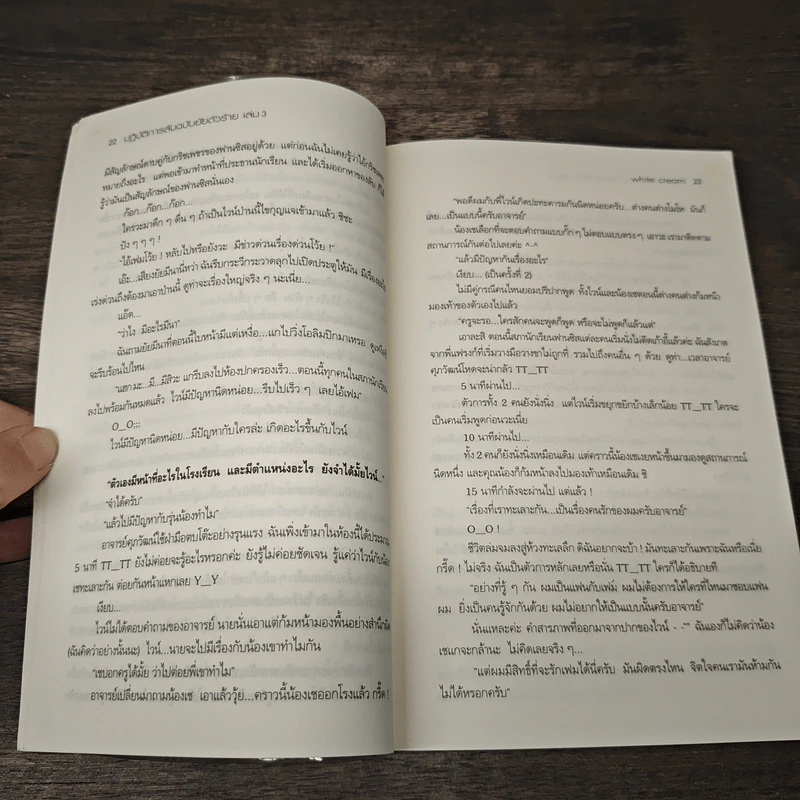 22 ปฏิบัติการลับฉบับยัยตัวร้าย เล่ม 3
มีสัญลักษณ์ดาบคู่กับกริชเพชรของฟานซิสอยู่ด้วย แต่ก่อนฉันไม่เคยรู้ว่าไอ้กริชเพชร
หมายถึงอะไร แต่พอเข้ามาทำหน้าที่ประธานนักเรียน และได้เริ่มออกหาของลับ ก็ได้
รู้ว่ามันเป็นสัญลักษณ์ของฟานซิสนั่นเอง
ก๊อก...ก๊อก...ก๊อก...
ใครวะมาดึก ๆ ดื่น ๆ ถ้าเป็นไวน์ป่านนี้ไขกุญแจเข้ามาแล้ว ชิชะ
ปัง ๆ ๆ ๆ !
"ไอ้เฟมโว้ย ! หลับไปหรือยังวะ มีข่าวด่วนเรื่องด่วนโว้ย !"
เอ๊ะ...เสียงยัยมีนานี่หว่า ฉันรีบกระวีกระวาดลุกไปเปิดประตูให้มัน มีเรื่องอะไร
เร่งด่วนถึงต้องมาเอาป่านนี้ ดูท่าจะเรื่องใหญ่จริง ๆ นะเนี่ย...
แอ๊ด...
"ว่าไง มีอะไรมีนา"
ฉันถามยัยมีนาที่ตอนนี้ใบหน้ามีแต่เหงื่อ...แกไปวิ่งโอลิมปิกมาเหรอ ดูเหมือนี่
จะรีบร้อนไปไหน
"แฮก มะ...มี...มีสิวะ แกรีบลงไปห้องปกครองเร็ว...ตอนนี้ทุกคนในสภานักเรียน
ลงไปพร้อมกันหมดแล้ว ไวน์มีปัญหานิดหน่อย...รีบไปเร็ว ๆ เลยไอ้เฟม"
O_O;;;
ไวน์มีปัญหานิดหน่อย...มีปัญหากับใครล่ะ เกิดอะไรขึ้นกับไวน์
"ตัวเองมีหน้าที่อะไรในโรงเรียน และมีตำแหน่งอะไร ยังจำได้มั้ยไวน์..."
"จำได้ครับ"
"แล้วไปมีปัญหากับรุ่นน้องทำไม"
อาจารย์ศุภวัฒน์ใช้ฝ่ามือตบโต๊ะอย่างรุนแรง ฉันเพิ่งเข้ามาในห้องนี้ได้ประมาณ
5 นาที TT_TT ยังไม่ค่อยจะรู้อะไรหรอกค่ะ ยังรู้ไม่ค่อยชัดเจน รู้แค่ว่าไวน์กับน้อง
เซทะเลาะกัน ต่อยกันหน้าแหกเลย Y__Y
เงียบ...
ไวน์ไม่ได้ตอบคำถามของอาจารย์ นายนั่นเอาแต่ก้มหน้ามองพื้นอย่างสำนึกผิด
(ฉันคิดว่าอย่างนั้นนะ) ไวน์...นายจะไปมีเรื่องกับน้องเขาทำไมกัน
"เซบอกครูได้มั้ย ว่าไปต่อยพี่เขาทำไม"
อาจารย์เปลี่ยนมาถามน้องเซ เอาแล้ววุ้ย...คราวนี้น้องเซออกโรงแล้ว กรี๊ด !
white cream 23
"พอดีผมกับพี่ไวน์เกิดปะทะคารมกันนิดหน่อยครับ...ต่างคนต่างโมโห มันก็
เลย...เป็นแบบนี้ครับอาจารย์"
น้องเซเลือกที่จะตอบคำถามแบบกั๊ก ๆ ไม่ตอบแบบตรง ๆ เอาวะ เรามาติดตาม
สถานการณ์กันต่อไปเลยค่ะ ^.^
"แล้วมีปัญหากันเรื่องอะไร"
เงียบ... (เป็นครั้งที่ 2)
ไม่มีคู่กรณีคนไหนยอมปริปากพูด ทั้งไวน์และน้องเซตอนนี้ต่างคนต่างก้มหน้า
มองเท้าของตัวเองไปแล้ว
"ครูจะรอ...ใครสักคนจะพูดก็พูด หรือจะไม่พูดก็แล้วแต่"
เอาละสิ ตอนนี้สภานักเรียนฟานซิสแต่ละคนเริ่มนั่งไม่ติดเก้าอี้แล้วค่ะ ฉันสังเกต
จากพี่แฟรงก์ที่เริ่มวางมือวางขาไม่ถูกที่ รวมไปถึงคนอื่น ๆ ด้วย ดูท่า...เวลาอาจารย์
ศุภวัฒน์โหดจะน่ากลัว TT_TT
5 นาทีผ่านไป...
ตัวการทั้ง 2 คนยังนั่งนิ่ง แต่ไวน์เริ่มขยุกขยิกบ้างเล็กน้อย TT_TT ใครจะ
เป็นคนเริ่มพูดก่อนวะเนี่ย
10 นาทีผ่านไป...
ทั้ง 2 คนก็ยังนั่งนิ่งเหมือนเดิม แต่คราวนี้น้องเซเงยหน้าขึ้นมามองดูสถานการณ์
นิดหนึ่ง และคุณน้องก็ก้มหน้าลงไปมองเท้าเหมือนเดิม ชิ
15 นาทีกำลังจะผ่านไป แต่แล้ว !
"เรื่องที่เราทะเลาะกัน...เป็นเรื่องคนรักของผมครับอาจารย์"
O__O !
ชีวิตล่มจมลงสู่ห้วงทะเลลึก ดิฉันอยากจะบ้า ! มันทะเลาะกันเพราะฉันหรือเนี่ย
กรี๊ด ! ไม่จริง ฉันเป็นตัวการหลักเลยหรือนั่น TT_TT ใครก็ได้อธิบายที
"อย่างที่รู้ ๆ กัน ผมเป็นแฟนกับเฟม ผมไม่ต้องการให้ใครที่ไหนมาชอบแฟน
ผม ยิ่งเป็นคนรู้จักกันด้วย ผมไม่อยากให้เป็นแบบนั้นครับอาจารย์"
นั่นแหละค่ะ คำสารภาพที่ออกมาจากปากของไวน์ - -"" ฉันเองก็ไม่คิดว่าน้อง
เซแกจะกล้านะ ไม่คิดเลยจริง ๆ...
"แต่ผมมีสิทธิ์ที่จะรักเฟมได้นี่ครับ มันผิดตรงไหน จิตใจคนเรามันห้ามกัน
ไม่ได้หรอกครับ"